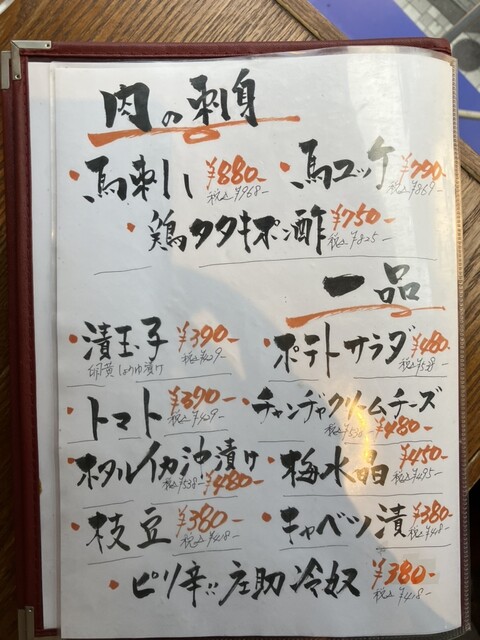 肉の刺身
・馬刺し ¥880- 税込¥968-
・馬ユッケ ¥790- 税込¥869-
・鶏タタキポン酢 ¥750- 税込¥825-
一品
・漬玉子 ¥390- 税込¥429-
卵黄しょうゆ漬け
・ポテトサラダ ¥480- 税込¥528-
・トマト ¥390- 税込¥429-
・チャンヂャクリームチーズ ¥480-
・ホタルイカ沖漬け 税込¥538- ¥480-
・梅水晶 ¥450- 税込¥495-
・枝豆 ¥380- 税込¥418-
・キャベツ漬 ¥380- 税込¥418-
・ピリ辛!!左助冷奴 ¥380- 税込¥418-